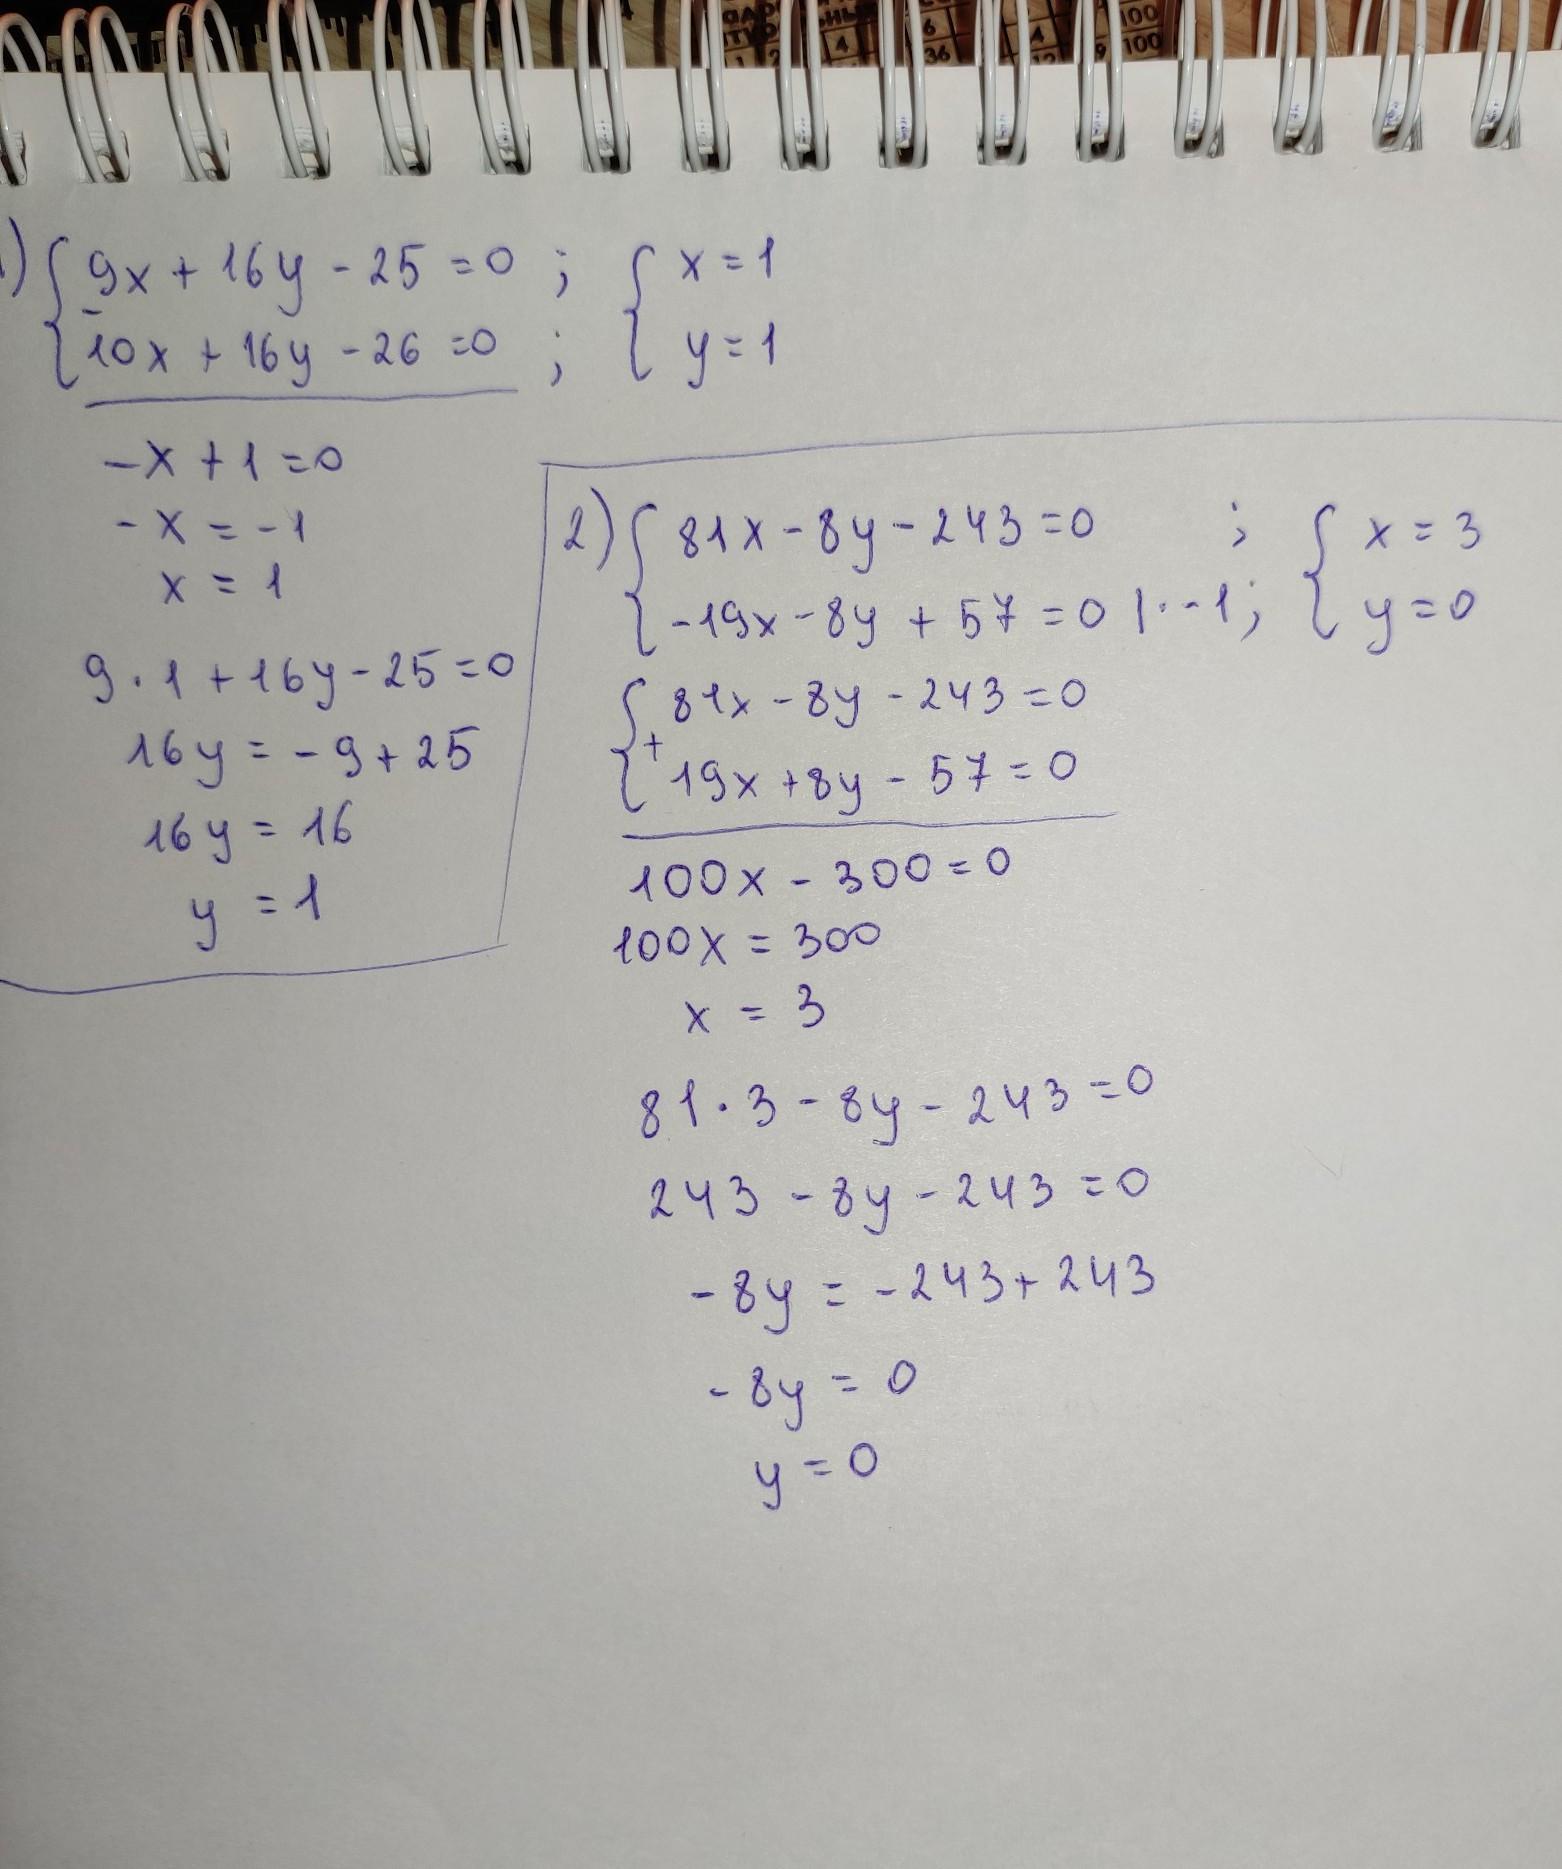 1) { 9x + 16y - 25 = 0 ; { x = 1
- 10x + 16y - 26 = 0 ; y = 1
-x + 1 = 0
-x = -1
x = 1
9 · 1 + 16y - 25 = 0
16y = -9 + 25
16y = 16
y = 1
2) { 81x - 8y - 243 = 0 ; { x = 3
-19x - 8y + 57 = 0 | · -1 ; y = 0
{ 81x - 8y - 243 = 0
+ 19x + 8y - 57 = 0
100x - 300 = 0
100x = 300
x = 3
81 · 3 - 8y - 243 = 0
243 - 8y - 243 = 0
-8y = -243 + 243
-8y = 0
y = 0